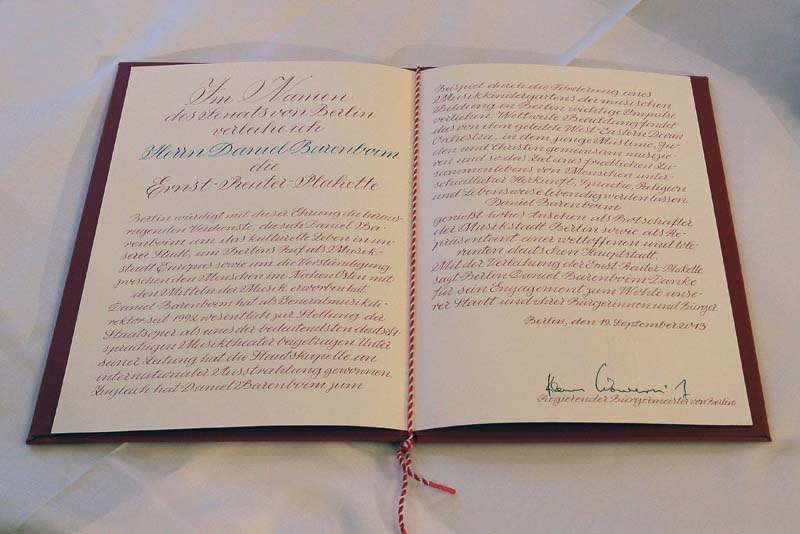 Im Namen
des Senats von Berlin
verleihe ich
Herrn Daniel Barenboim
die
Ernst-Reuter-Plakette
Berlin würdigt mit dieser Ehrung die heraus-
ragenden Verdienste, die sich Daniel Ba-
renboim um das kulturelle Leben in un-
serer Stadt, um Berlins Ruf als Musik-
stadt Europas sowie um die Verständigung
zwischen den Menschen im Nahen Osten mit
den Mitteln der Musik erworben hat.
Daniel Barenboim hat als Generalmusikdi-
rektor seit 1992 wesentlich zur Stellung der
Staatsoper als eines der bedeutendsten deutsch-
sprachigen Musiktheater beigetragen. Unter
seiner Leitung hat die Staatskapelle an
internationaler Ausstrahlung gewonnen.
Zugleich hat Daniel Barenboim zum
Beispiel durch die Förderung eines
Musikkindergartens der musischen
Bildung in Berlin wichtige Impulse
verliehen. Weltweite Beachtung findet
das von ihm geleitete West-Eastern Divan
Orchestra, in dem junge Muslime, Ju-
den und Christen gemeinsam musizie-
ren und so das Ziel eines friedlichen Zu-
sammenlebens von Menschen unter-
schiedlicher Herkunft, Sprache, Religion
und Lebensweise lebendig werden lassen.
Daniel Barenboim
genießt hohes Ansehen als Botschafter
der Musikstadt Berlin sowie als Re-
präsentant einer weltoffenen und tole-
ranten deutschen Hauptstadt.
Mit der Verleihung der Ernst-Reuter-Plakette
sagt Berlin Daniel Barenboim Danke
für sein Engagement zum Wohle unse-
rer Stadt und ihrer Bürgerinnen und Bürger.
Berlin, den 19. September 2013
Regierender Bürgermeister von Berlin